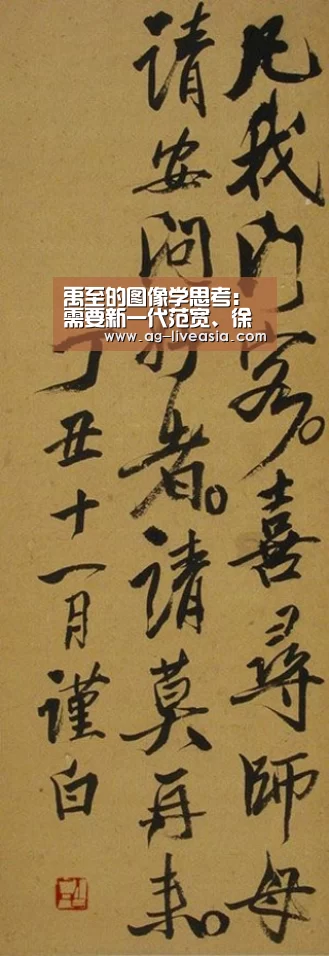 凡我門客。喜尋師母
請安問好者。請莫再来。
丁丑十一月謹白
禹至的图像学思考:
需要新一代范宽、徐
www.ag-liveasia.com